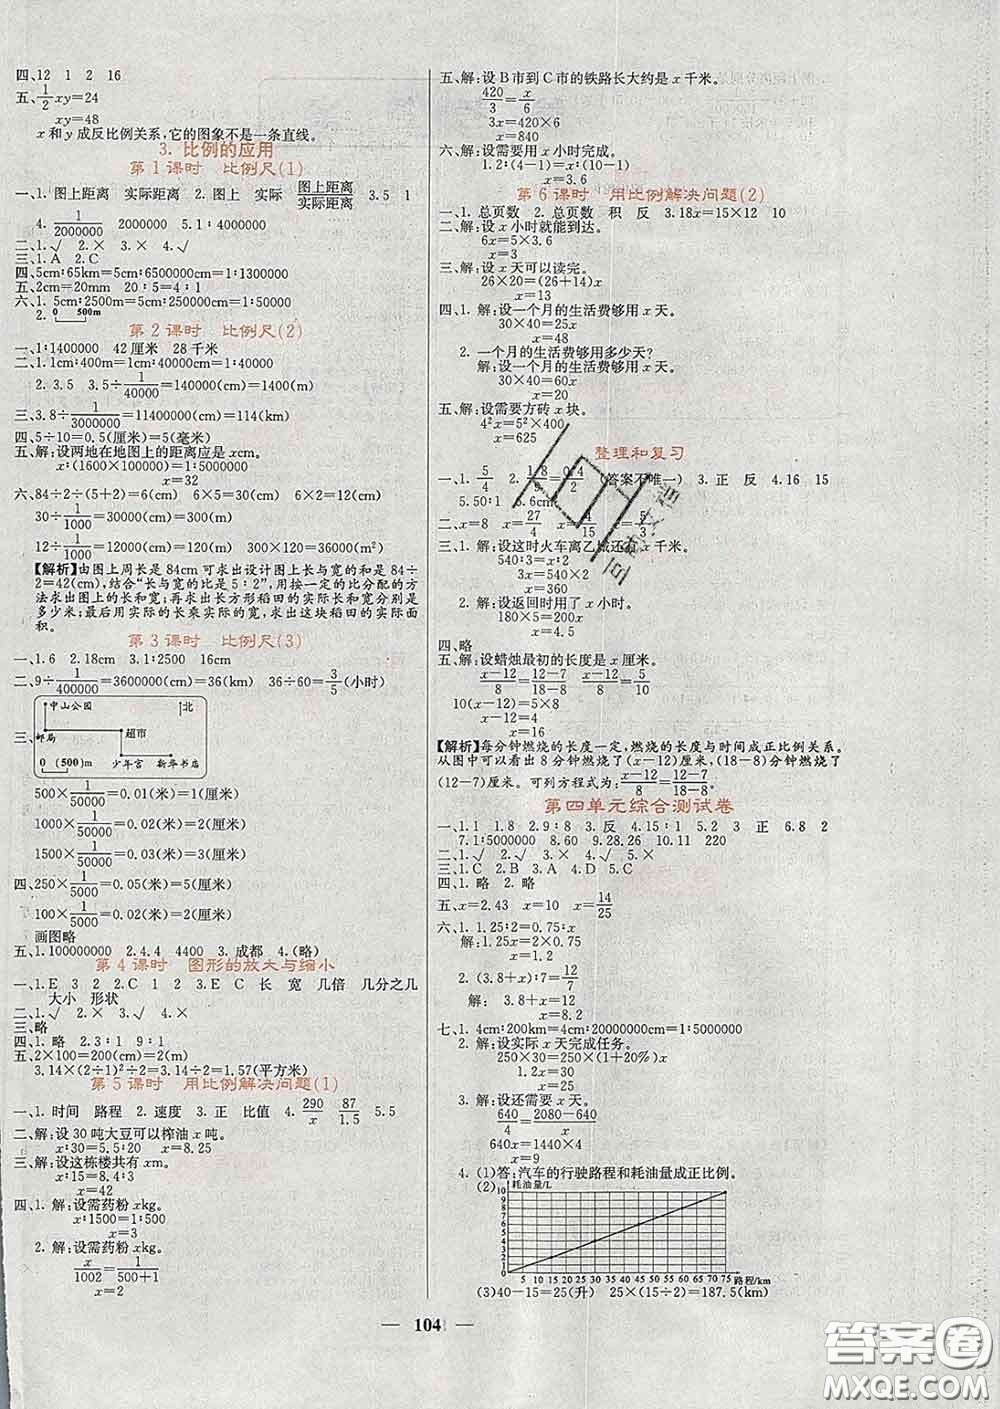 四、12 1 2 16
五、1/2xy=24
xy=48
x 和 y 成反比例关系,它的图象不是一条直线。
3. 比例的应用
第1课时 比例尺(1)
一、1. 图上距离 实际距离 2. 图上 实际 图上距离/实际距离 3.5 1
4. 1/2000000 2000000 5.1∶4000000
二、1.√ 2.× 3.× 4.√
三、1. A 2. C
四、5cm∶65km=5cm∶6500000cm=1∶1300000
五、2cm=20mm 20∶5=4∶1
六、1. 5cm∶2500m=5cm∶250000cm=1∶50000
2. 0 500m
第2课时 比例尺(2)
一、1∶1400000 42厘米 28千米
二、1. 1cm∶400m=1cm∶40000cm=1∶40000
2. 3.5 3.5÷1/40000=140000(cm)=1400(m)
三、3.8÷1/3000000=11400000(cm)=114(km)
四、5÷10=0.5(厘米)=5(毫米)
五、解:设两地在地图上的距离应是 xcm。
x∶(1600×100000)=1∶5000000
x=32
六、84÷2÷(5+2)=6(cm) 6×5=30(cm) 6×2=12(cm)
30÷1/1000=30000(cm)=300(m)
12÷1/1000=12000(cm)=120(m) 300×120=36000(m²)
【解析】由图上周长是 84cm 可求出设计图上长与宽的和是 84÷
2=42(cm),结合“长与宽的比是 5∶2”,用按一定的比分配的方
法求出图上的长和宽;再求出长方形稻田的实际长和宽分别是
多少米;最后用实际的长乘实际的宽,求出这块稻田的实际面
积。
第3课时 比例尺(3)
一、1.6 2.18cm 3.1∶2500 16cm
二、9÷1/400000=3600000(cm)=36(km) 36÷60=3/5(小时)
三、
中山公园 北
邮局 超市
0 (500)m 少年宫 新华书店
500×1/50000=0.01(米)=1(厘米)
1000×1/50000=0.02(米)=2(厘米)
1500×1/50000=0.03(米)=3(厘米)
四、250×1/5000=0.05(米)=5(厘米)
100×1/5000=0.02(米)=2(厘米)
画图略
五、1.100000000 2.4.4 4400 3. 成都 4.(略)
第4课时 图形的放大与缩小
一、1. E 3 2 2. C 1 2 3. E C 长 宽 几倍 几分之几
大小 形状
二、1.√ 2.× 3.√ 4.×
三、略
四、1. 略 2.3∶1 9∶1
五、2×100=200(cm)=2(m)
3.14×(2÷2)²÷2=3.14÷2=1.57(平方米)
第5课时 用比例解决问题(1)
一、1. 时间 路程 2. 速度 3. 正 比值 4. 290/x 87/1.5 5.5
二、解:设 30 吨大豆可以榨油 x 吨。
x∶30=5.5∶20 x=8.25
三、解:设这栋楼共有 xm。
x∶15=8.4∶3
x=42
四、1. 解:设需药粉 xkg。
x∶1500=1∶500
x=3
2. 解:设需药粉 xkg。
x/1002=1/(500+1)
x=2
五、解:设B市到C市的铁路长大约是 x 千米。
420/3=x/6
3x=420×6
x=840
六、解:设需要用 x 小时完成。
1.2∶(4-1)=x∶(10-1)
x=3.6
第6课时 用比例解决问题(2)
一、1. 总页数 2. 总页数 积 反 3.18x=15×12 10
二、解:设 x 小时就能到达。
6x=5×3.6
x=3
三、解:设 x 天可以读完。
26×20=(26+14)x
x=13
四、1. 解:设一个月的生活费够用 x 天。
30×40=25x
x=48
2. 一个月的生活费够用多少天?
解:设一个月的生活费够用 x 天。
30×40=60x
x=20
五、解:设需要方砖 x 块。
4²x=5²×400
x=625
整理和复习
一、1. 5/4 2. 1.8/9=0.4/2 (答案不唯一) 3. 正 反 4.16 15
5.50∶1 6.6cm
二、x=8 x=27/4 x=4/15 x=5/3
三、1. 解:设这时火车离乙城还有 x 千米。
540∶3=x∶2
3x=540×2
x=360
2. 解:设返回时用了 x 小时。
180×5=200x
x=4.5
四、略
五、解:设蜡烛最初的长度是 x 厘米。
(x-12)/8=(12-7)/(18-8) (x-12)/8=5/10
10(x-12)=5×8
x-12=4
x=16
【解析】每分钟燃烧的长度一定,燃烧的长度与时间成正比例关系。
从图中可以看出 8 分钟燃烧了(x-12)厘米,(18-8)分钟燃烧了
(12-7)厘米。可列方程式为:(x-12)/8=(12-7)/(18-8)。
第四单元综合测试卷
一、1.1 1.8 2.9∶8 3. 反 4.15∶1 5.2 3 正 6.8 2
7.1∶5000000 8.60 9.28.26 10.11 220
二、1.√ 2.√ 3.× 4.√ 5.×
三、1. C 2. B 3. A 4. D 5. C
四、1. 略 2. 略
五、x=2.43 x=10 x=14/25
六、1. 1.25∶2=0.75∶x
解:1.25x=2×0.75
x=1.2
2. (3.8+x)∶7=12/7
解: 3.8+x=12
x=8.2
七、1. 4cm∶200km=4cm∶20000000cm=1∶5000000
2. 解:设实际 x 天完成任务。
250×30=250×(1+20%)x
1.2x=30
x=25
3. 解:设还需要 x 天。
640/4=(2080-640)/x
640x=1440×4
x=9
4. (1)答:汽车的行驶路程和耗油量成正比例。
(2) 耗油量/L
10
9
8
7
6
5
4
3
2
1
0 5 10 15 20 25 30 35 40 45 50 55 60 65 70 75 路程/km
(3)40-15=25(升) 25×(15÷2)=187.5(km)
104
答案圈
MXQE.COM